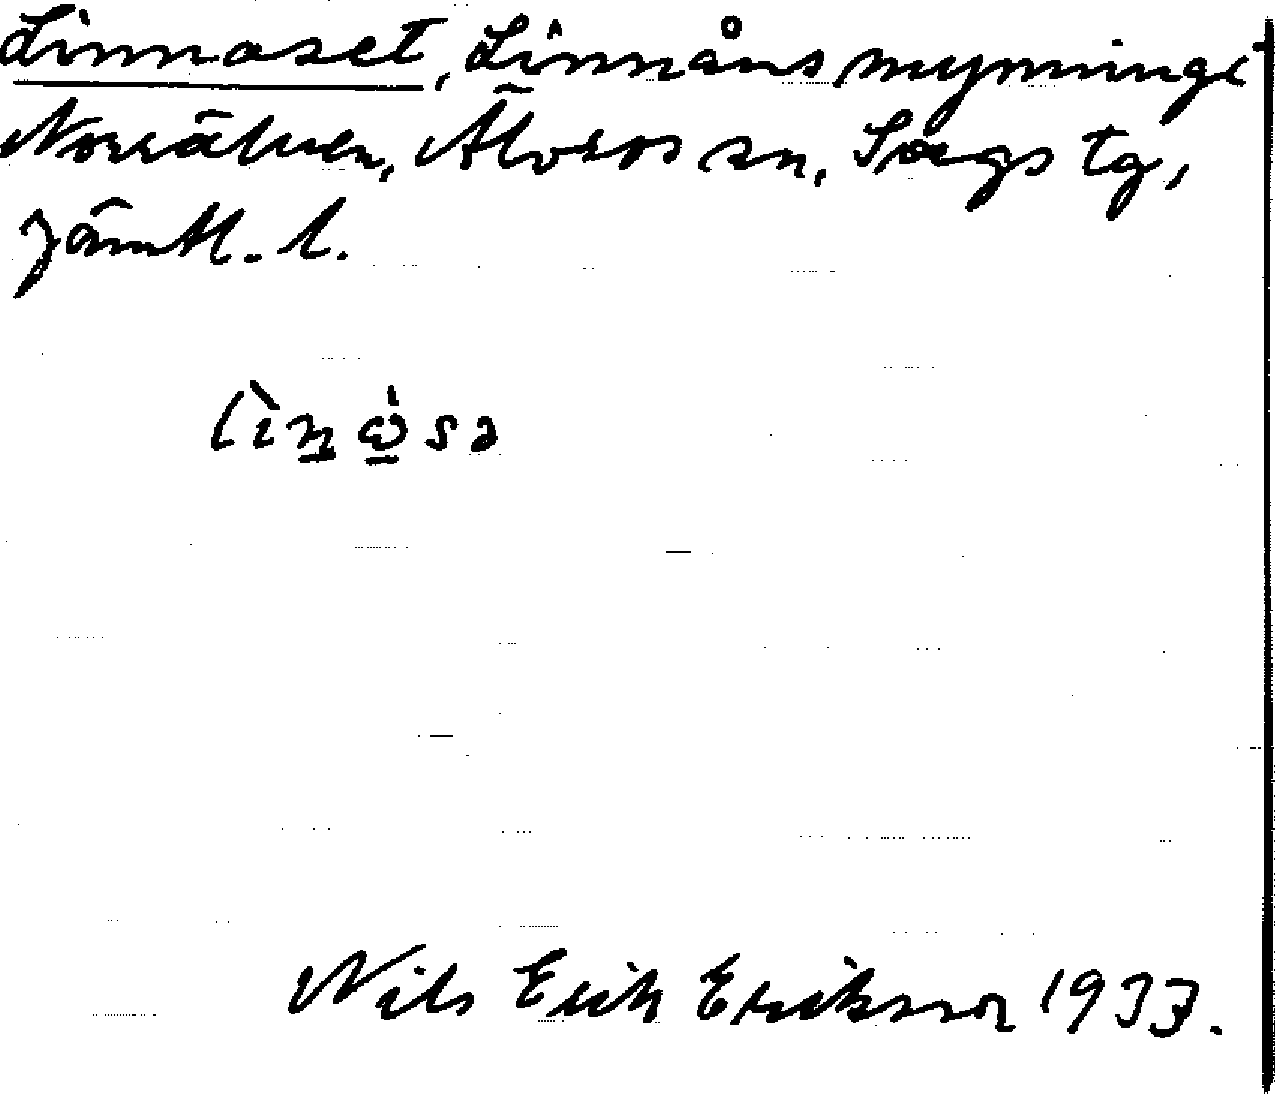 Linnoset, Linnåns mynning i
Norrälven, Älvros sn, Svegs tg,
Jämtl. l.
Nils Erik Eriksson 1933.